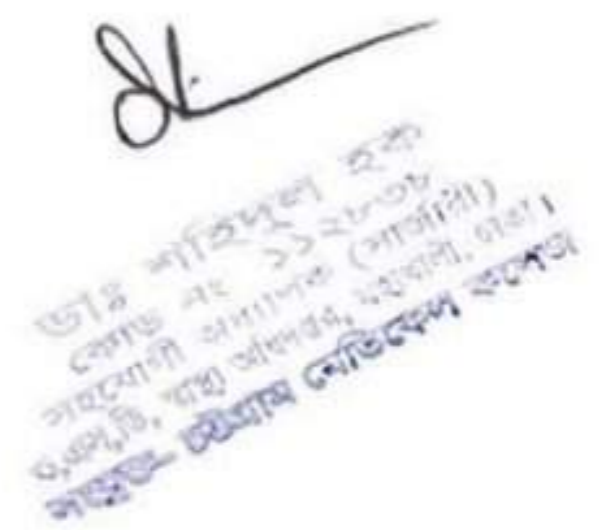 ডাঃ শহিদুল হক
কোড নং ১১২৮৩৮
সহযোগী অধ্যাপক (সার্জারী)
ও,এস,ডি, স্বাস্থ্য অধিদপ্তর, মহাখালী, ঢাকা।
সংযুক্ত- চট্টগ্রাম মেডিকেল কলেজ